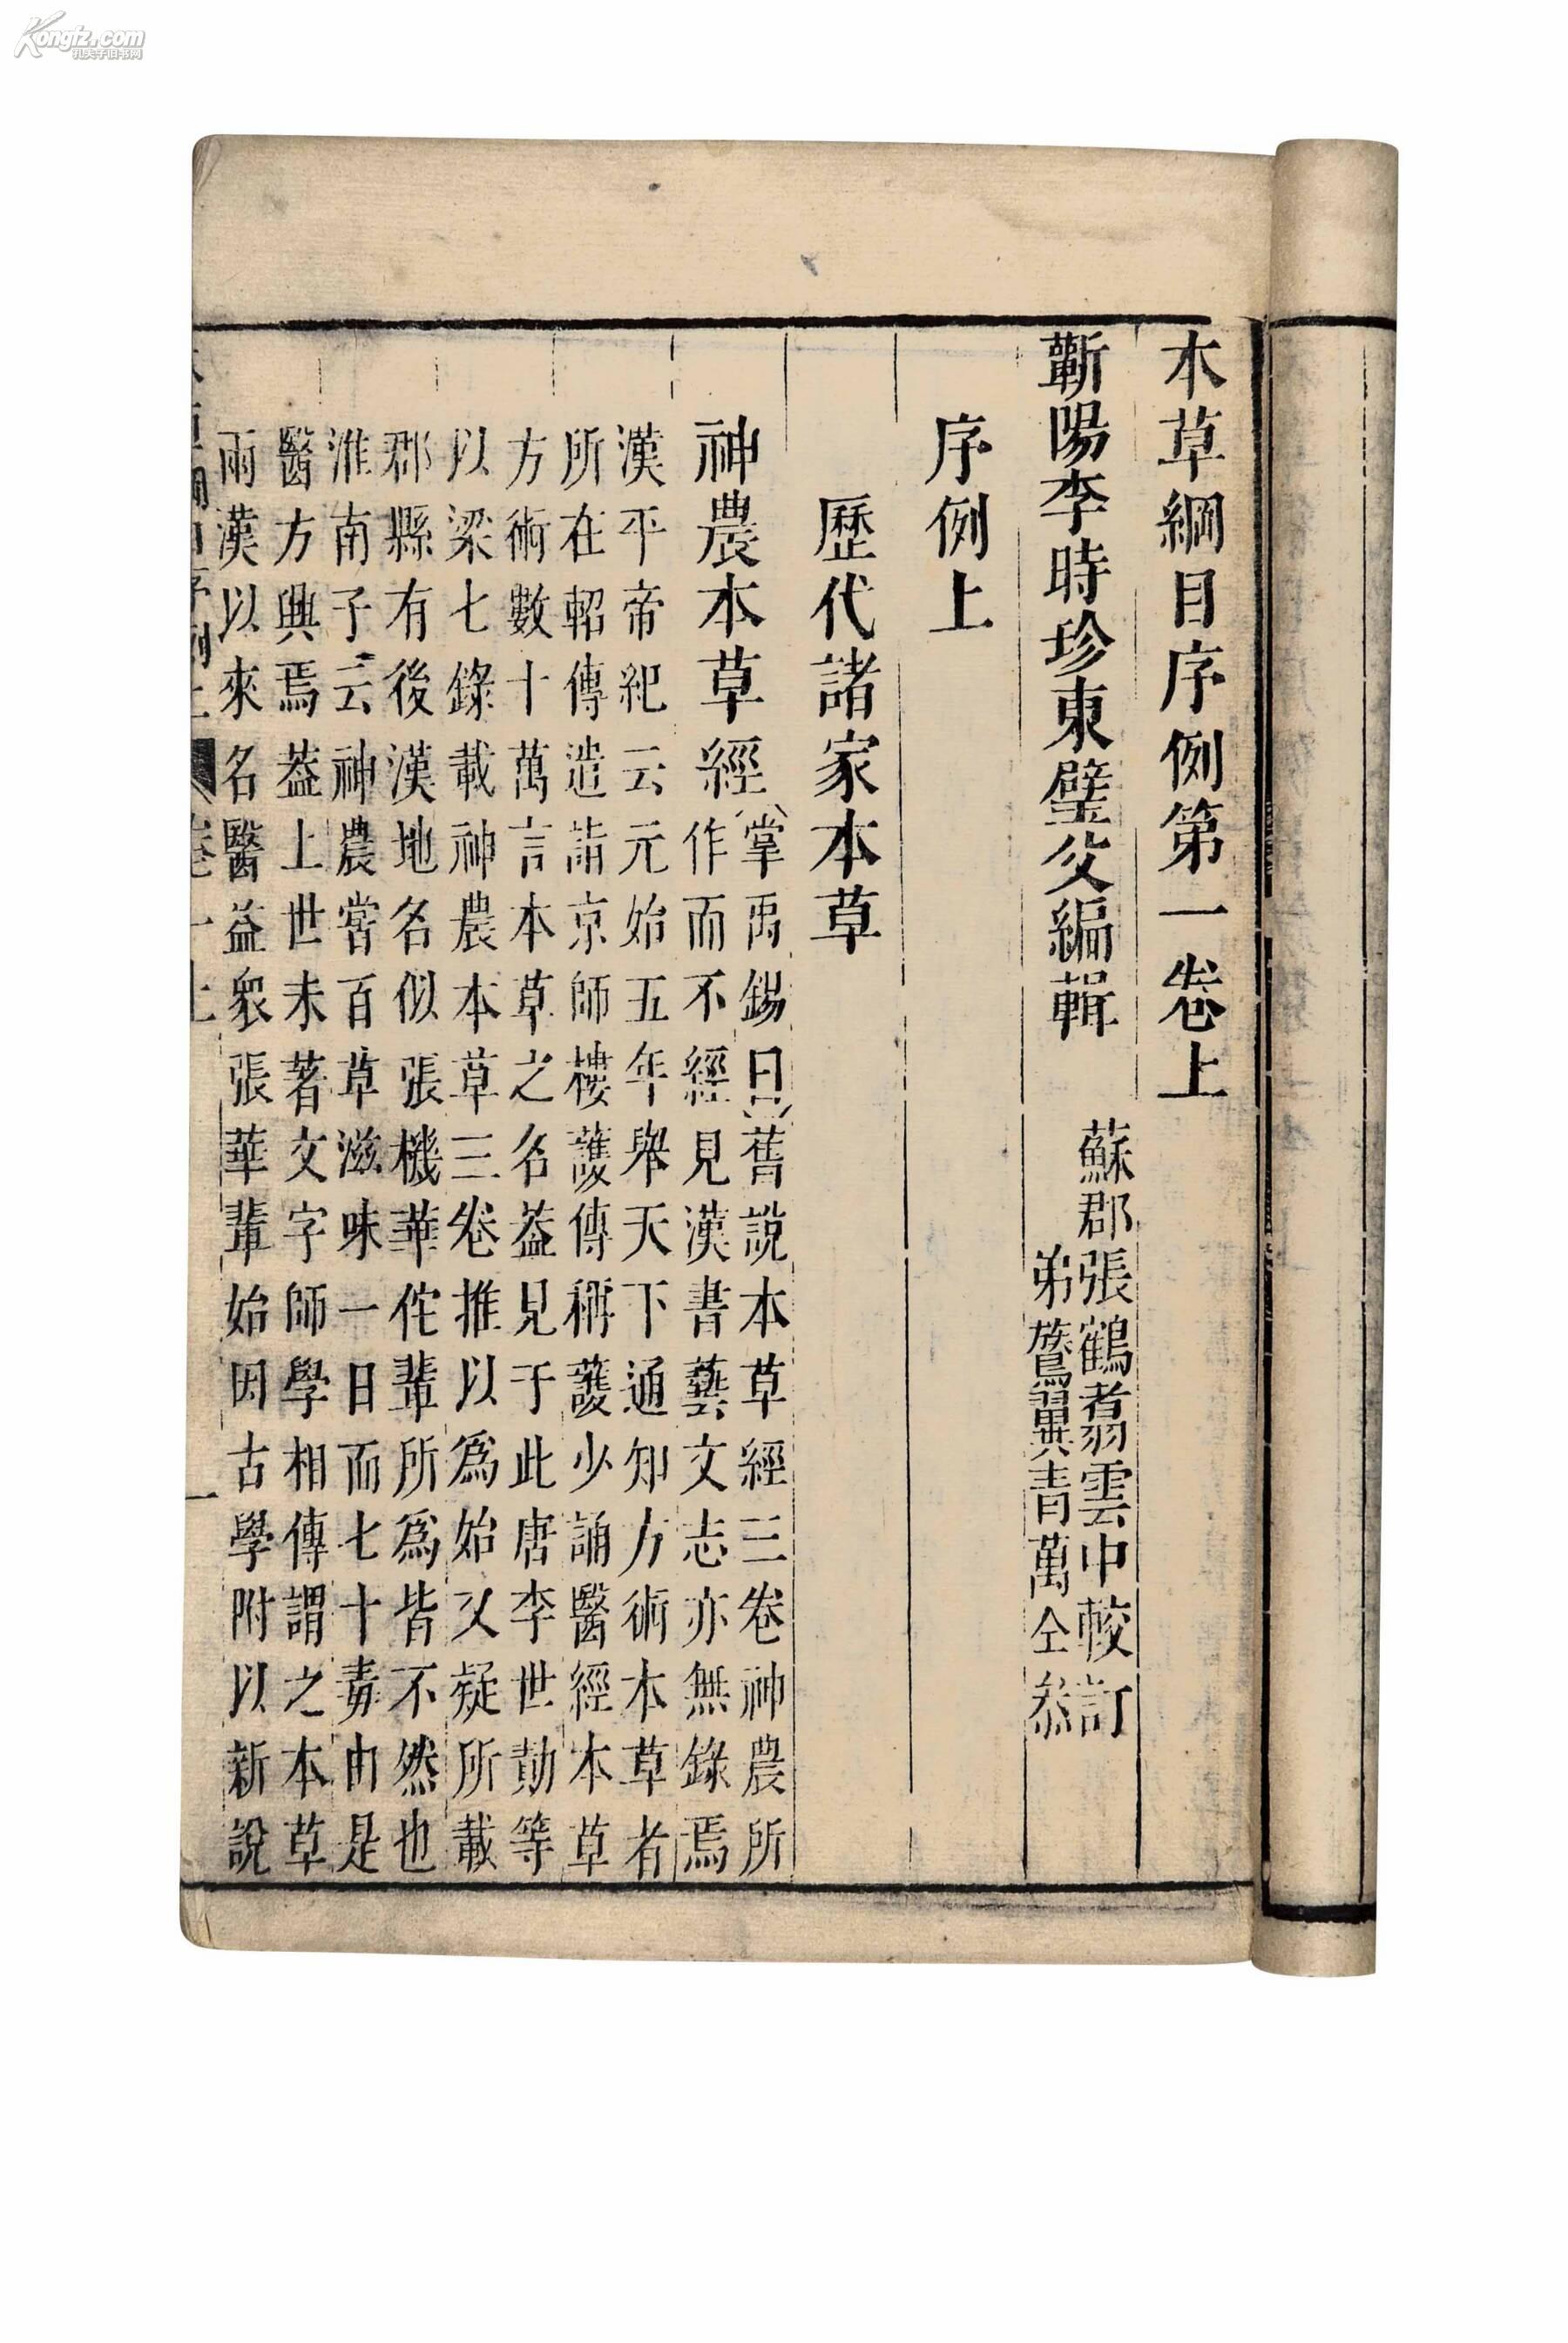 本草綱目序例第一卷上
蘄陽李時珍東璧父編輯
蘇郡張鶴翥雲中較訂
弟鷟翼青萬仝叅
序例上
歷代諸家本草
神農本草經
掌禹錫曰舊說本草經三卷神農所
作而不經見漢書藝文志亦無錄焉
漢平帝紀云元始五年舉天下通知方術本草者
所在軺傳遣詣京師樓護傳稱護少誦醫經本草
方術數十萬言本草之名蓋見于此唐李世勣等
以梁七錄載神農本草三卷推以爲始又疑所載
郡縣有後漢地名似張機華佗輩所爲皆不然也
淮南子云神農嘗百草滋味一日而七十毒由是
醫方興焉蓋上世未著文字師學相傳謂之本草
兩漢以來名醫益衆張華輩始因古學附以新說
Kongfz.com
孔夫子旧书网